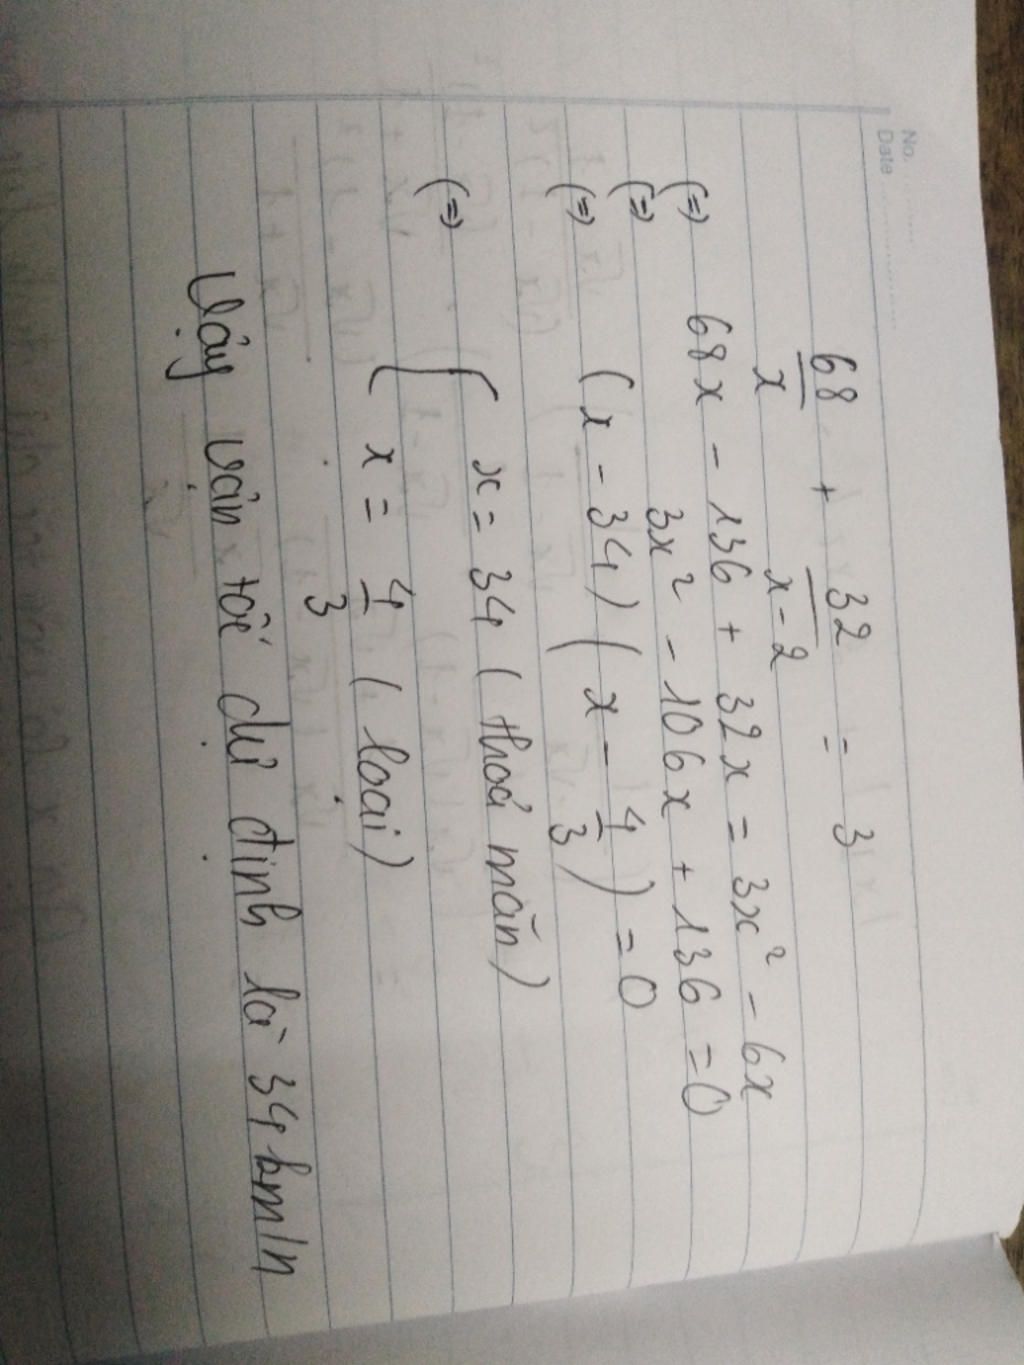 No.
Date
68/x + 32/x-2 = 3
(=) 68x - 136 + 32x = 3x² - 6x
(=) 3x² - 106x + 136 = 0
(=) (x - 34) (x - 4/3) = 0
(=) { x = 34 (thoả mãn)
x = 4/3 (loại)
Vậy vận tốc dự định là 34 km/h